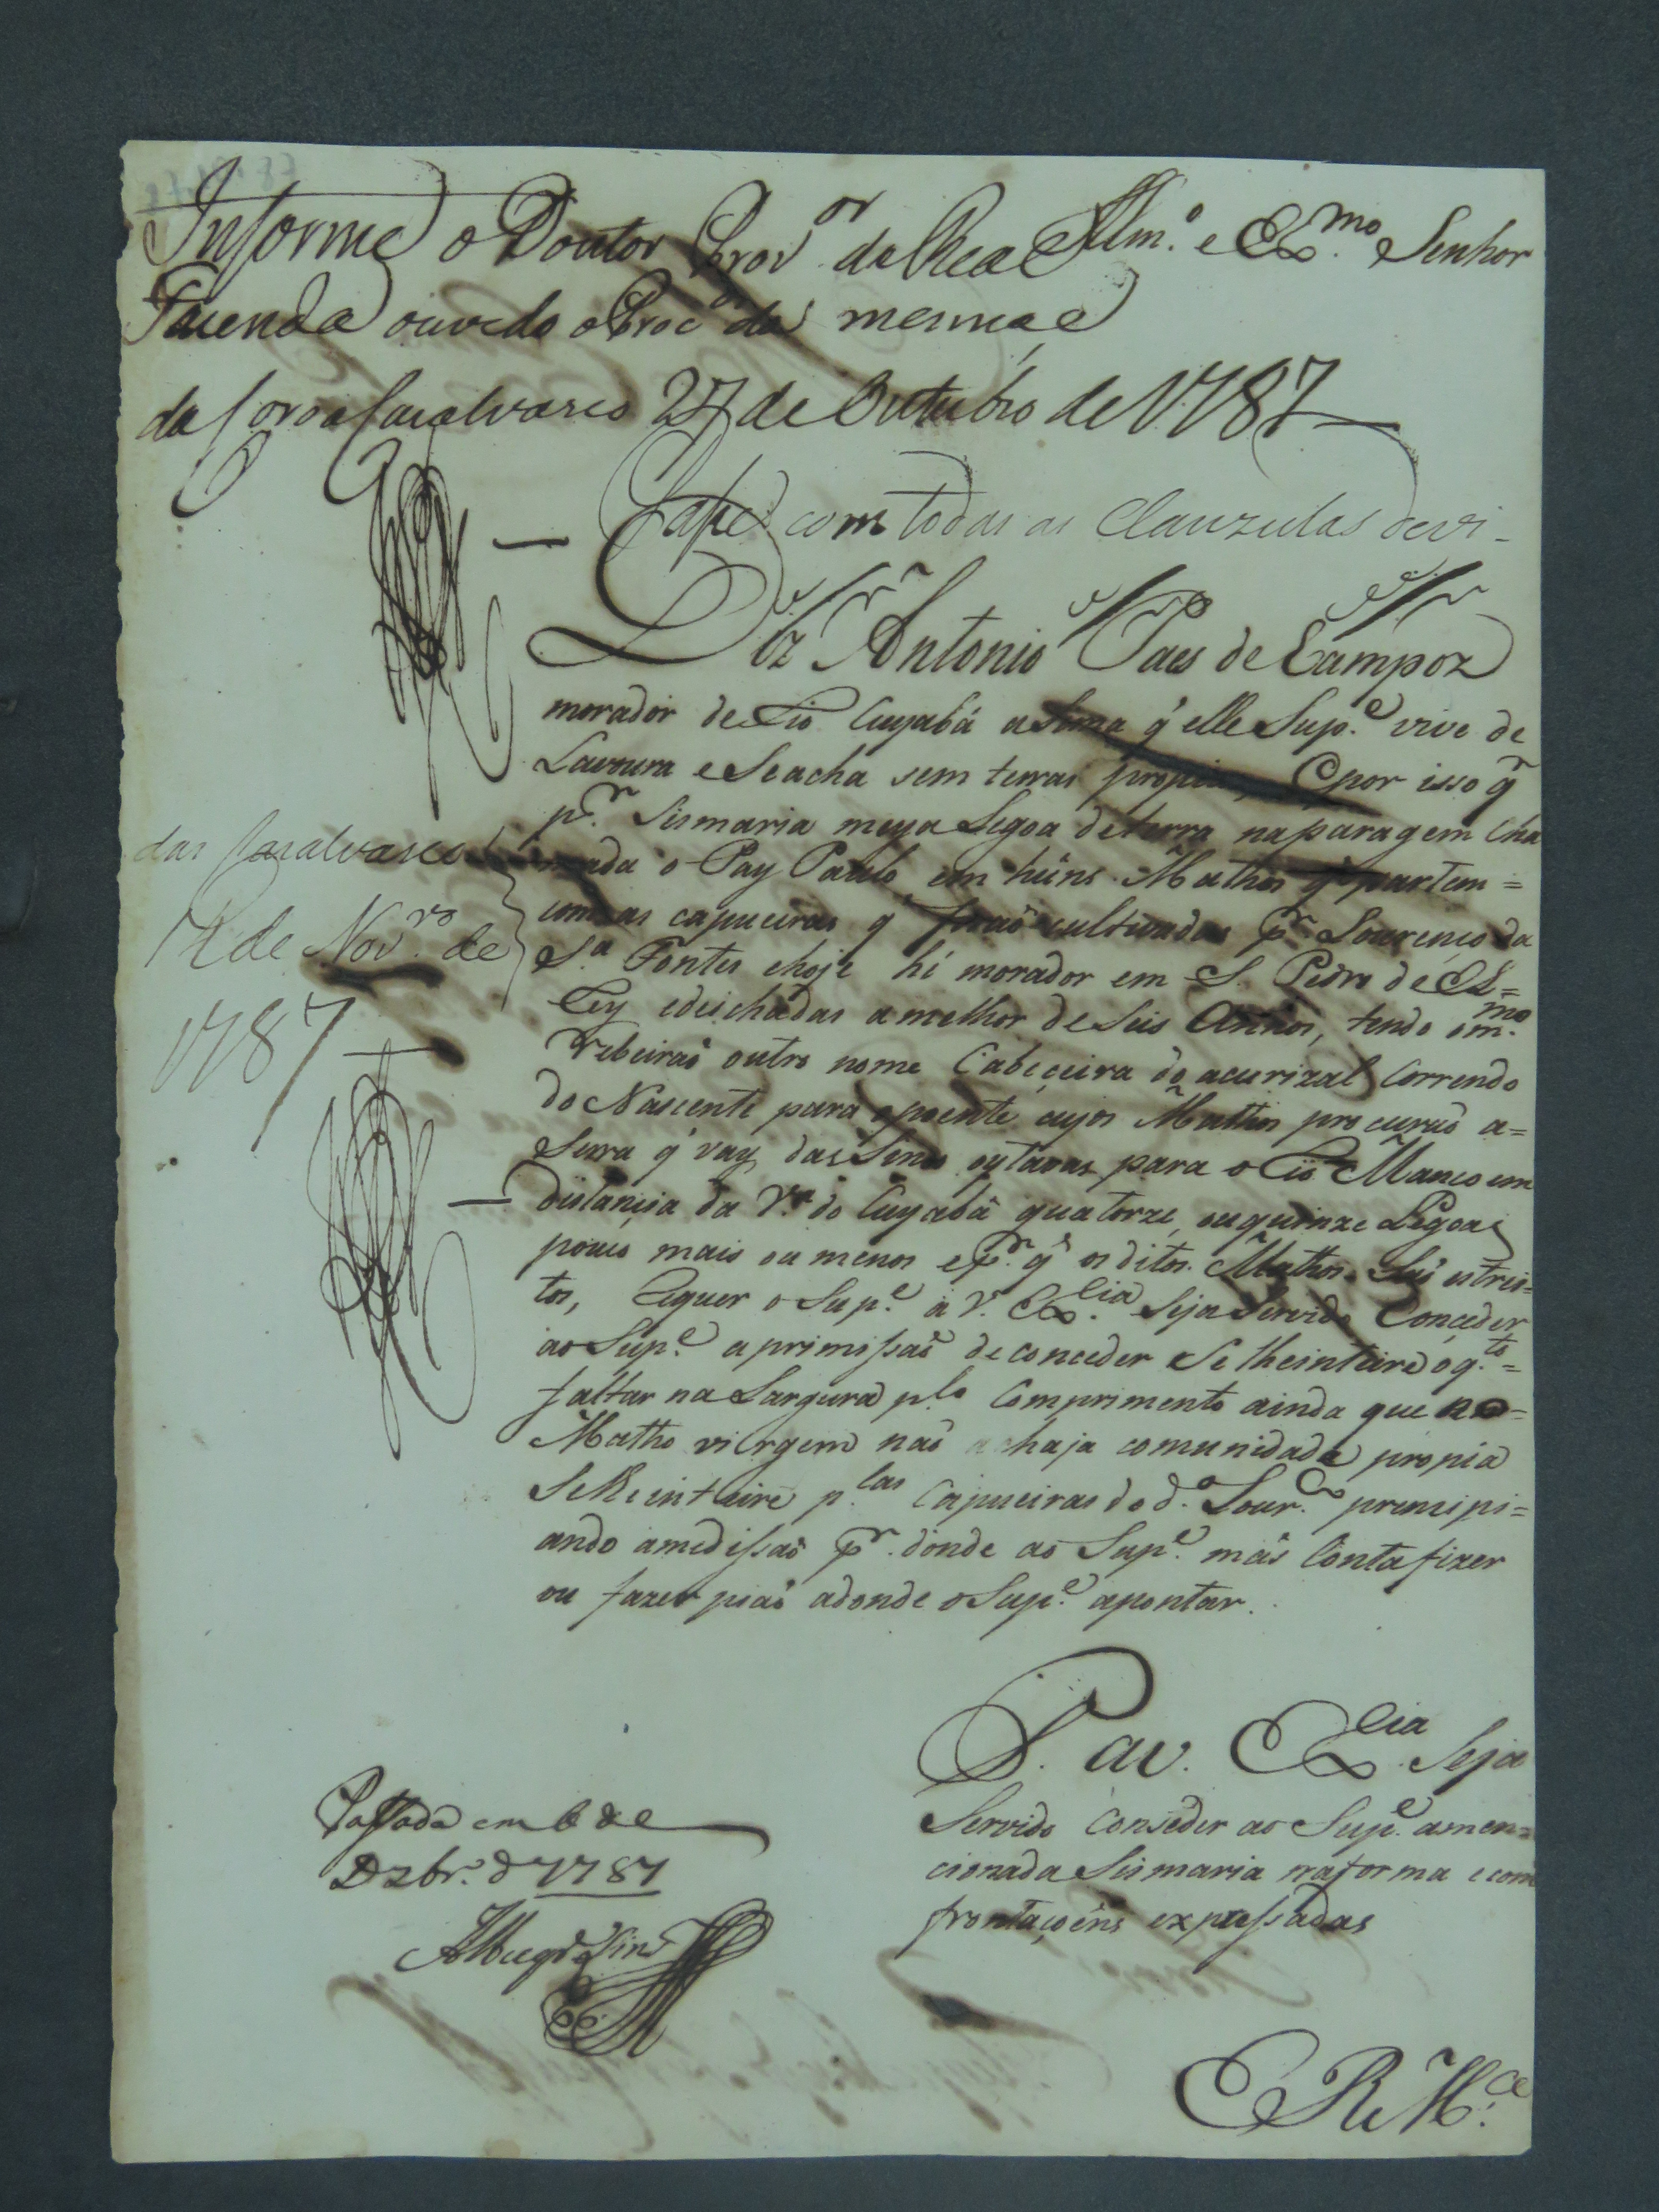 Informe o Doutor Prov.or da Real
Illm.o e Ex.mo Senhor
Fazenda ouvido o Proc.or da mesma e
da Coroa Casalvasco 27 de Outubro de 1787
Passe com todas as Clauzulas devi-
das Casalvasco
12 de Nov.ro de
1787
Diz Antonio Paes de Campoz
morador de Rio Cuyabá asima q' elle Sup.e vive de
Lavoura e Se acha sem terras propias, E por isso q.r
p.r Sismaria meya Legoa de terra na paragem cha
mada o Pay Paulo em huns Mathos q' partem =
com as capueiras q' foraõ cultivadas p.r Lourenço da
S.a Fontes e hoje hé morador em S. Pedro de El=
Rey e deichadas a melhor de Seis Annos, tendo o m.mo
Ribeiraõ outro nome Cabeceira do acurizal Correndo
do Nascente para o poente cujos Mathos procuraõ a=
Serra q' vay das outavas para o Rio Manco em
distancia da V.a do Cuyabá quatorze, ou quinze Legoas
pouco mais ou menos e p.r q' os ditos Mathos Saõ estrei=
tos, Requer o Sup.e a V. Ex.cia Seja Servido Conceder
ao Sup.e a primissaõ de conceder Se lhe inteire o q.to =
faltar na Largura p.lo Comprimento ainda que no=
Matho virgem naõ haja comunidade propia
Se lhe inteire p.las Capueiras do d.o Lour.co principi=
ando a medissaõ p.r donde ao Sup.e mais Conta fizer
ou fazer piaõ adonde o Sup.e apontar.
P. a V. Ex.cia Seja
Servido Conseder ao Sup.e a men=
cionada Sismaria na forma e com
frontaçoens expressadas
Passada em 6 de
Dzbr.o d 1787
E R M.ce